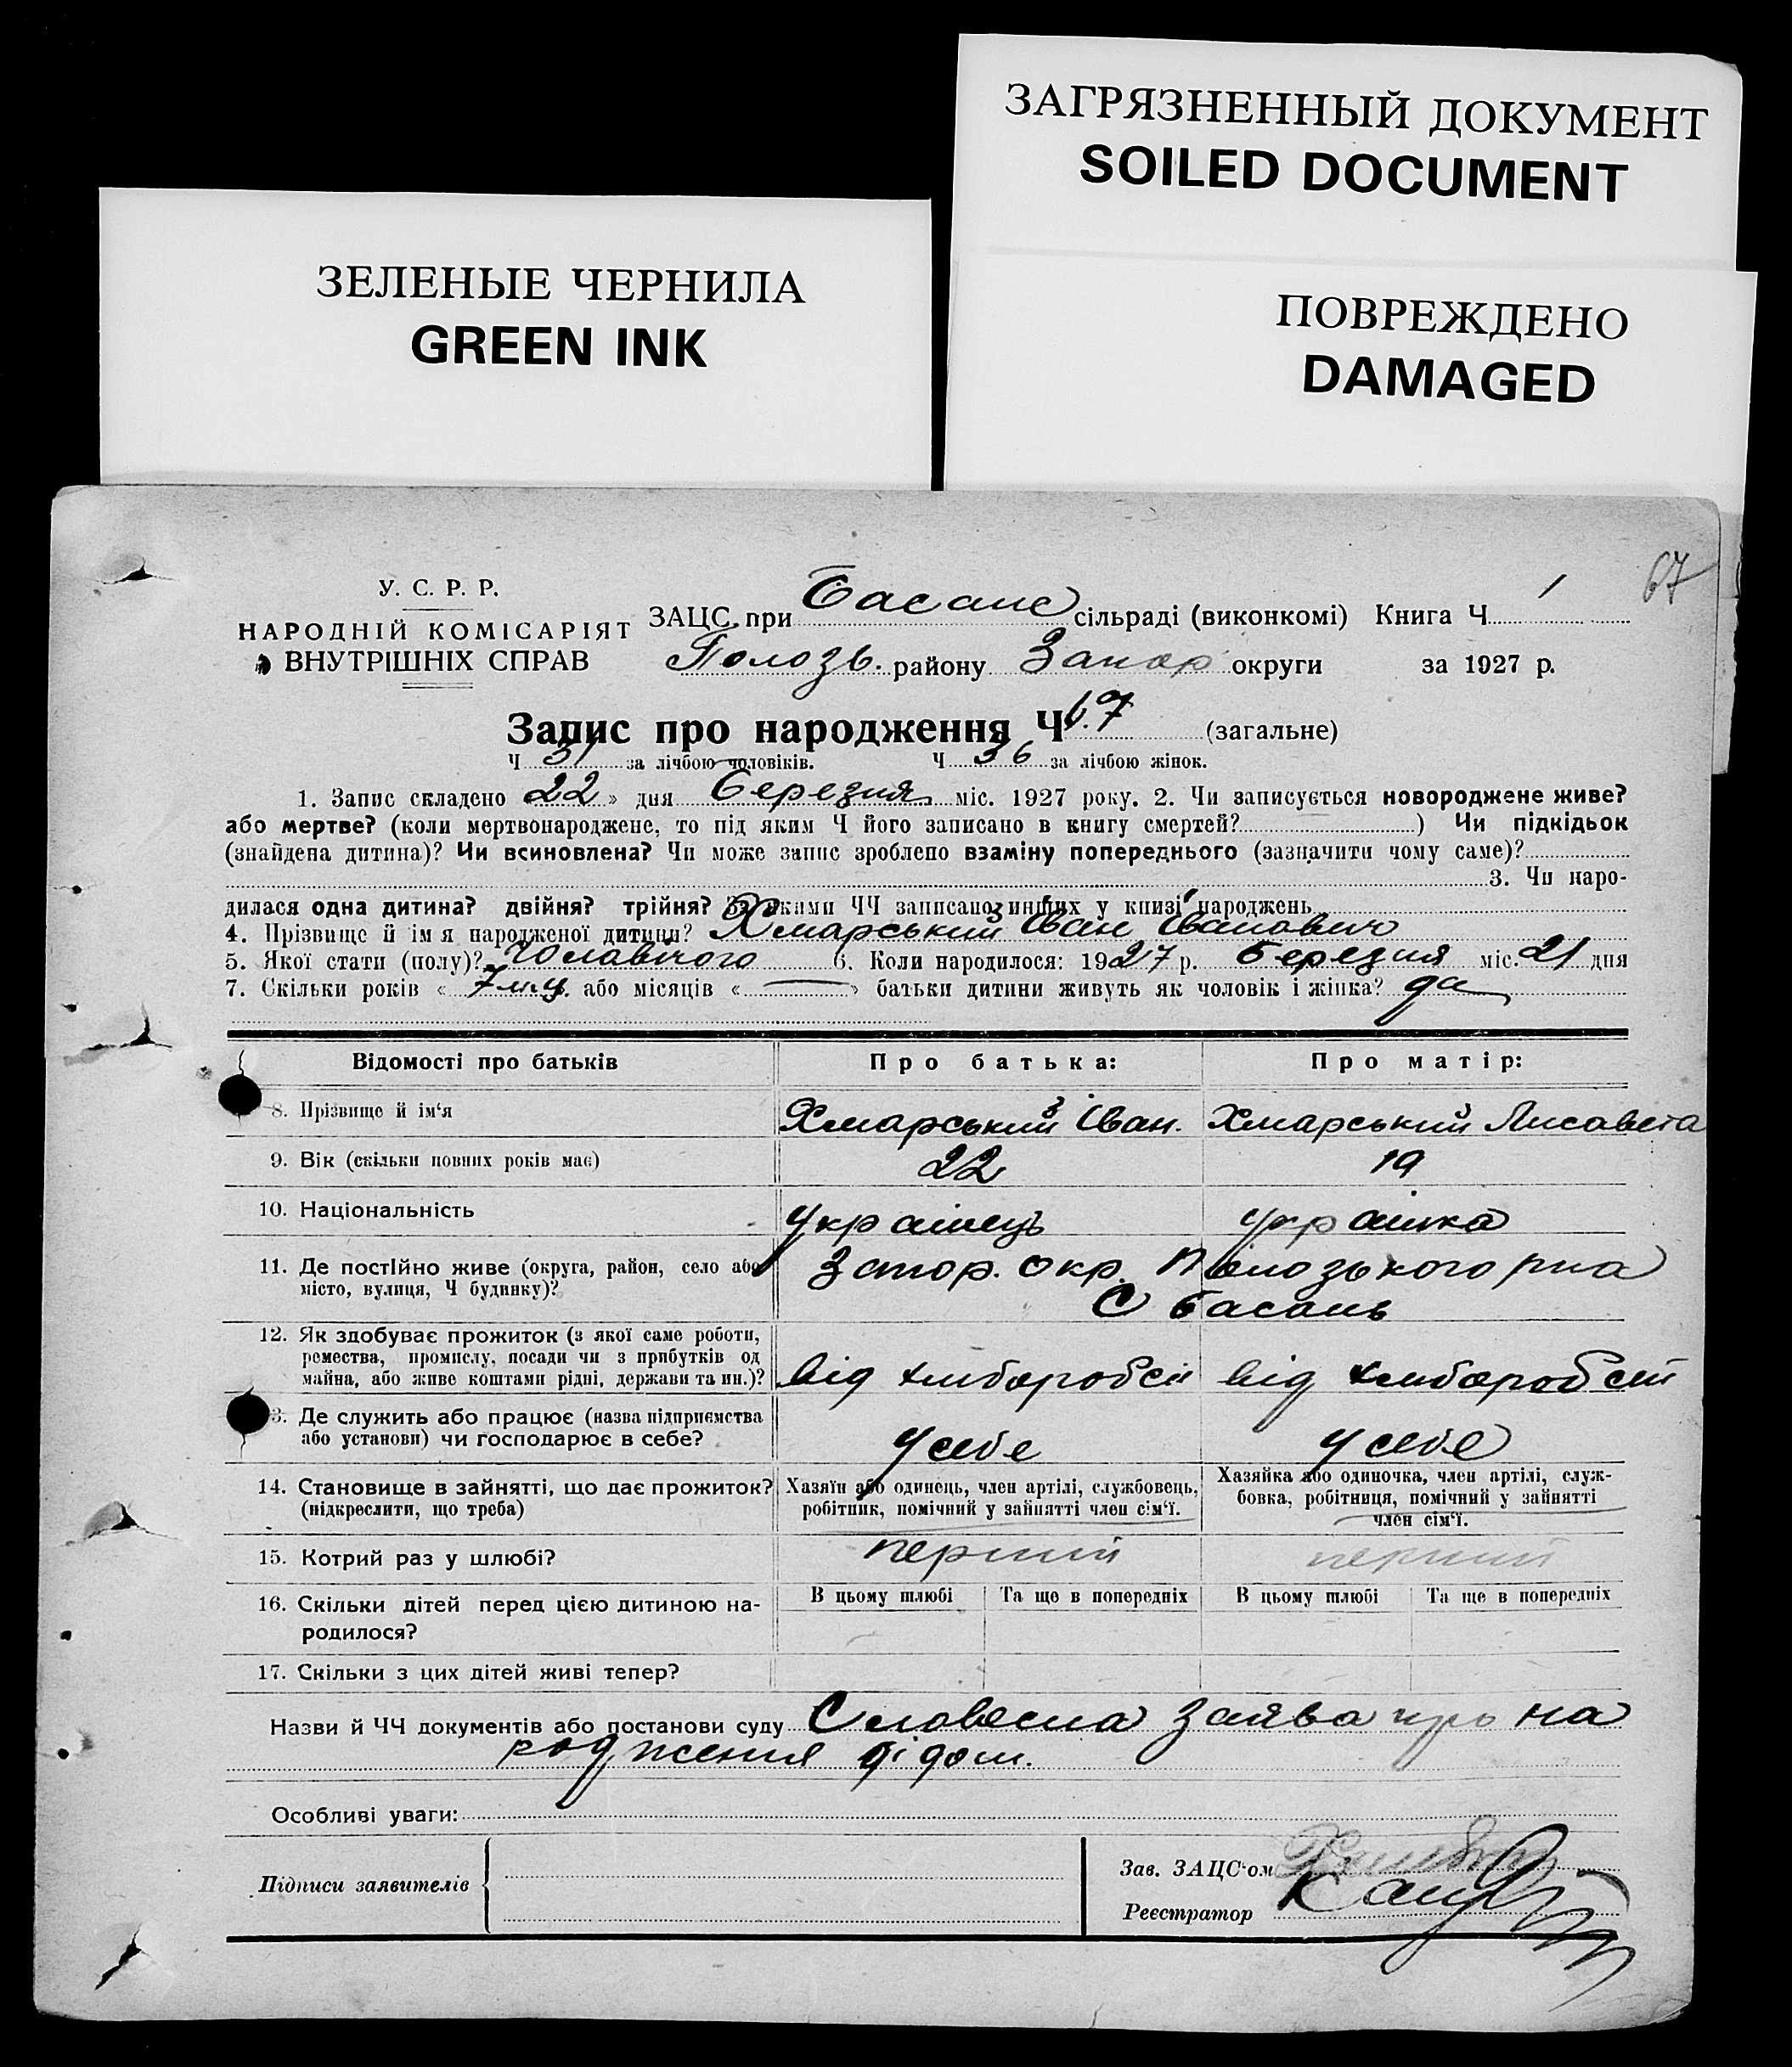 ЗАГРЯЗНЕННЫЙ ДОКУМЕНТ
SOILED DOCUMENT
ЗЕЛЕНЫЕ ЧЕРНИЛА
GREEN INK
ПОВРЕЖДЕНО
DAMAGED
67
У. С. Р. Р.
НАРОДНІЙ КОМІСАРІЯТ
ВНУТРІШНІХ СПРАВ
ЗАЦС при Басанс сільраді (виконкомі) Книга Ч 1
Полозь. району Запор округи за 1927 р.
Запис про народження Ч 67 (загальне)
Ч 31 за лічбою чоловіків. Ч 36 за лічбою жінок.
1. Запис складено 22 » дня березня міс. 1927 року. 2. Чи записується новороджене живе?
або мертве? (коли мертвонароджене, то під яким Ч його записано в книгу смертей? ) Чи підкідьок
(знайдена дитина)? Чи всиновлена? Чи може запис зроблено взаміну попереднього (зазначити чому саме)?
3. Чи наро-
дилася одна дитина? двійня? трійня? За якими ЧЧ записано инших у книзі народжень
4. Прізвище й ім я народженої дитини? Хмарський Іван Іванович
5. Якої стати (полу)? Чолавічого 6. Коли народилося: 1927 р. Березня міс. 21 дня
7. Скільки років « 7 миц. або місяців « — » батьки дитини живуть як чоловік і жінка? да
Відомості про батьків Про батька: Про матір:
8. Прізвище й ім'я Хмарський Іван. Хмарський Лисавета
9. Вік (скільки повних років має) 22 19
10. Національність українець українка
11. Де постійно живе (округа, район, село або Запор. окр. Полозького рна
місто, вулиця, Ч будинку)? С Басань
12. Як здобуває прожиток (з якої саме роботи,
ремества, промислу, посади чи з прибутків од
майна, або живе коштами рідні, держави та ин.)? від хлиборобсті від хлиборобсті
13. Де служить або працює (назва підприємства
або установи) чи господарює в себе? У себе У себе
14. Становище в зайнятті, що дає прожиток? Хазяїн або одинець, член артілі, службовець, Хазяйка або одиночка, член артілі, служ-
(підкреслити, що треба) робітник, помічний у зайнятті член сім'ї. бовка, робітниця, помічний у зайнятті
член сім'ї.
15. Котрий раз у шлюбі? перший перший
16. Скільки дітей перед цією дитиною на- В цьому шлюбі Та ще в попередніх В цьому шлюбі Та ще в попередніх
родилося?
17. Скільки з цих дітей живі тепер?
Назви й ЧЧ документів або постанови суду Словесна заява про на
родження дідом.
Особливі уваги:
Підписи заявителів
Зав. ЗАЦС'ом
Реєстратор